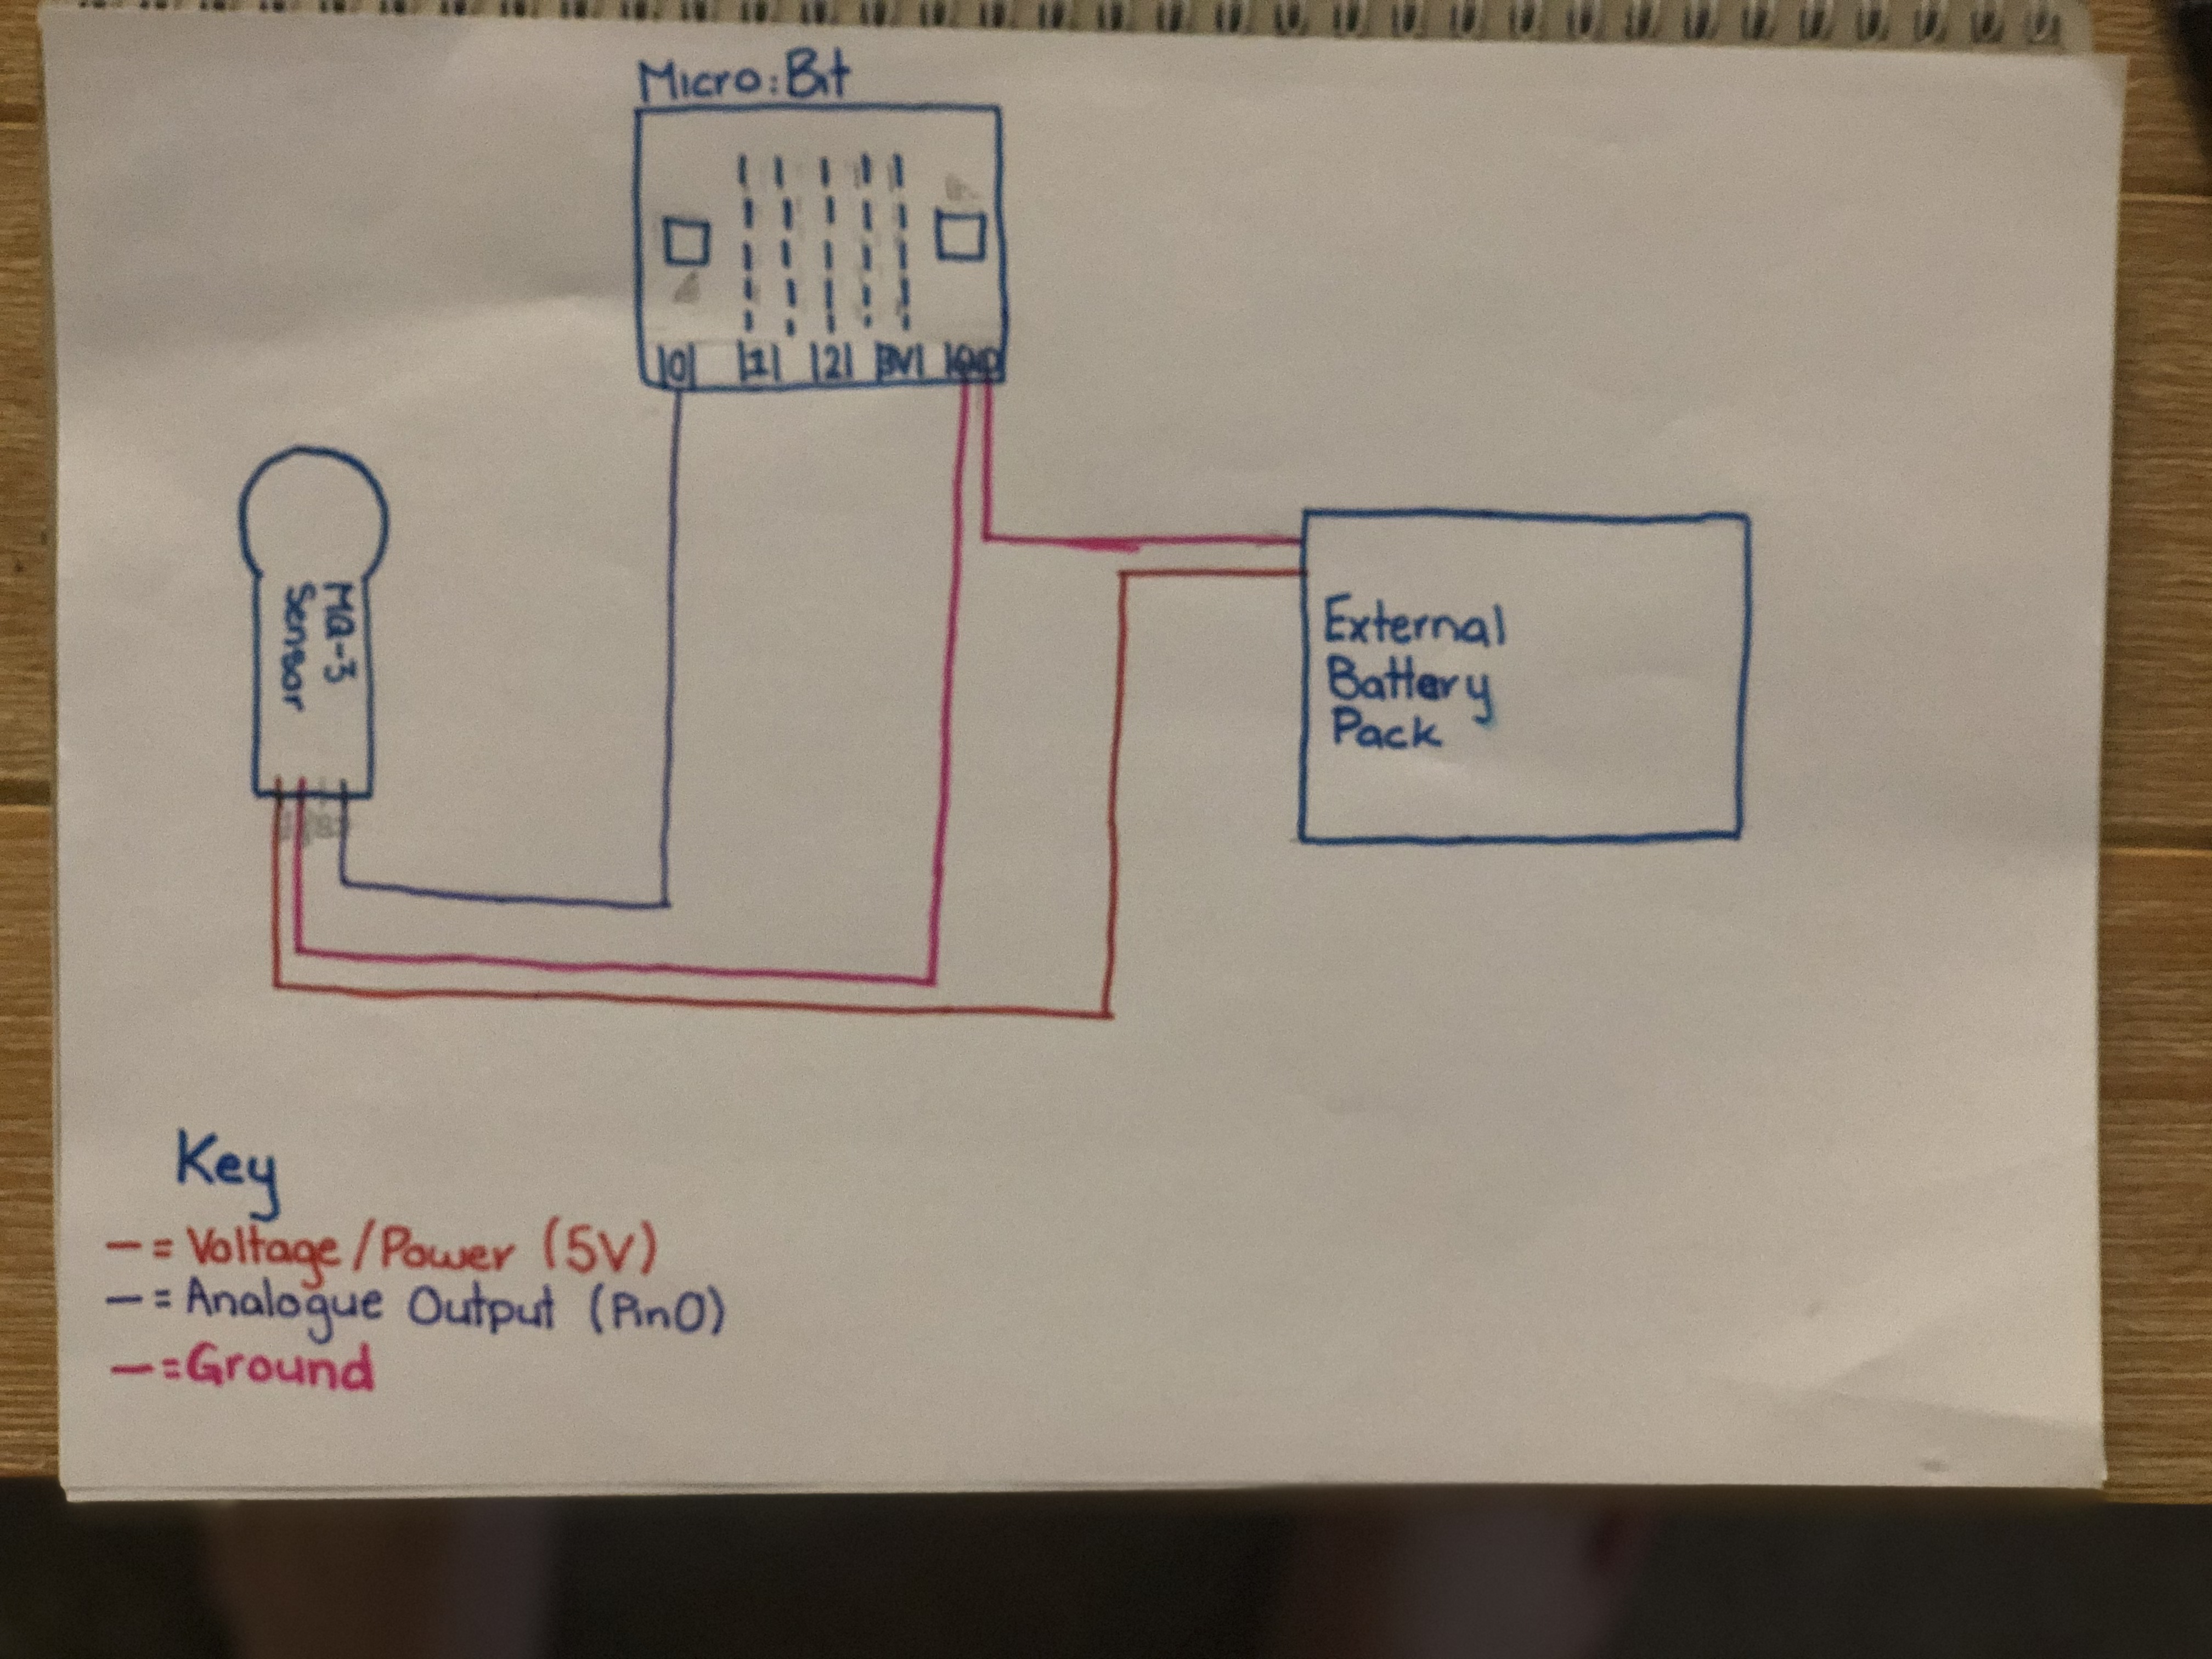 Micro:Bit
|0| |1| |2| |3V| |GND
MQ-3
Sensor
External
Battery
Pack
Key
— = Voltage/Power (5V)
— = Analogue Output (Pin0)
— = Ground